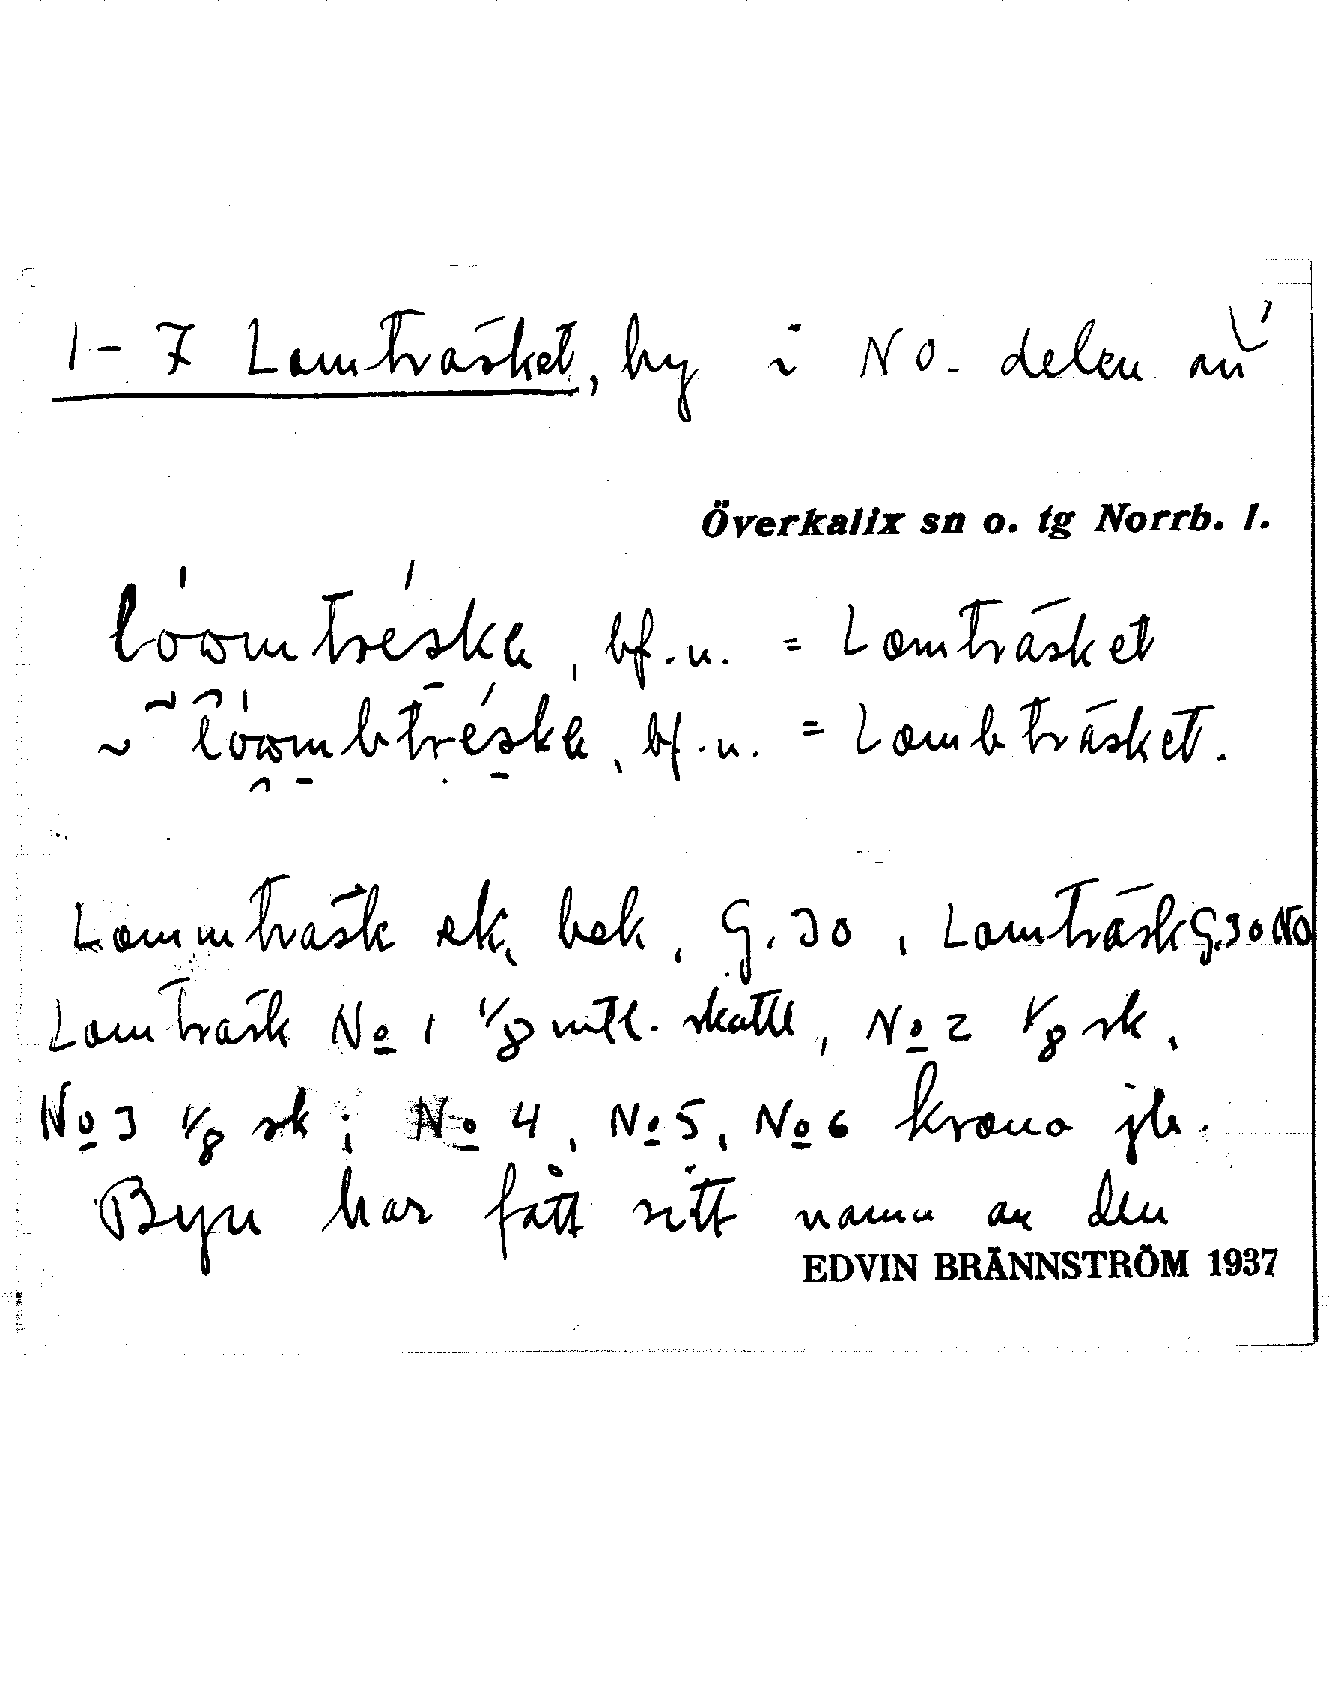 1-7 Lomträsket, by i NO. delen av
Överkalix sn o. tg Norrb. l.
lóomtréska, bf.n. = Lomträsket
~ lóombtréska, bf.n. = Lombträsket.
Lommträsk ek, bek, G. 30, Lomträsk G.30 NO
Lomträsk No 1 1/8 mtl. skatte, No 2 1/8 sk,
No 3 1/8 sk; No 4, No 5, No 6 krono jb.
Byn har fått sitt namn av den
EDVIN BRÄNNSTRÖM 1937